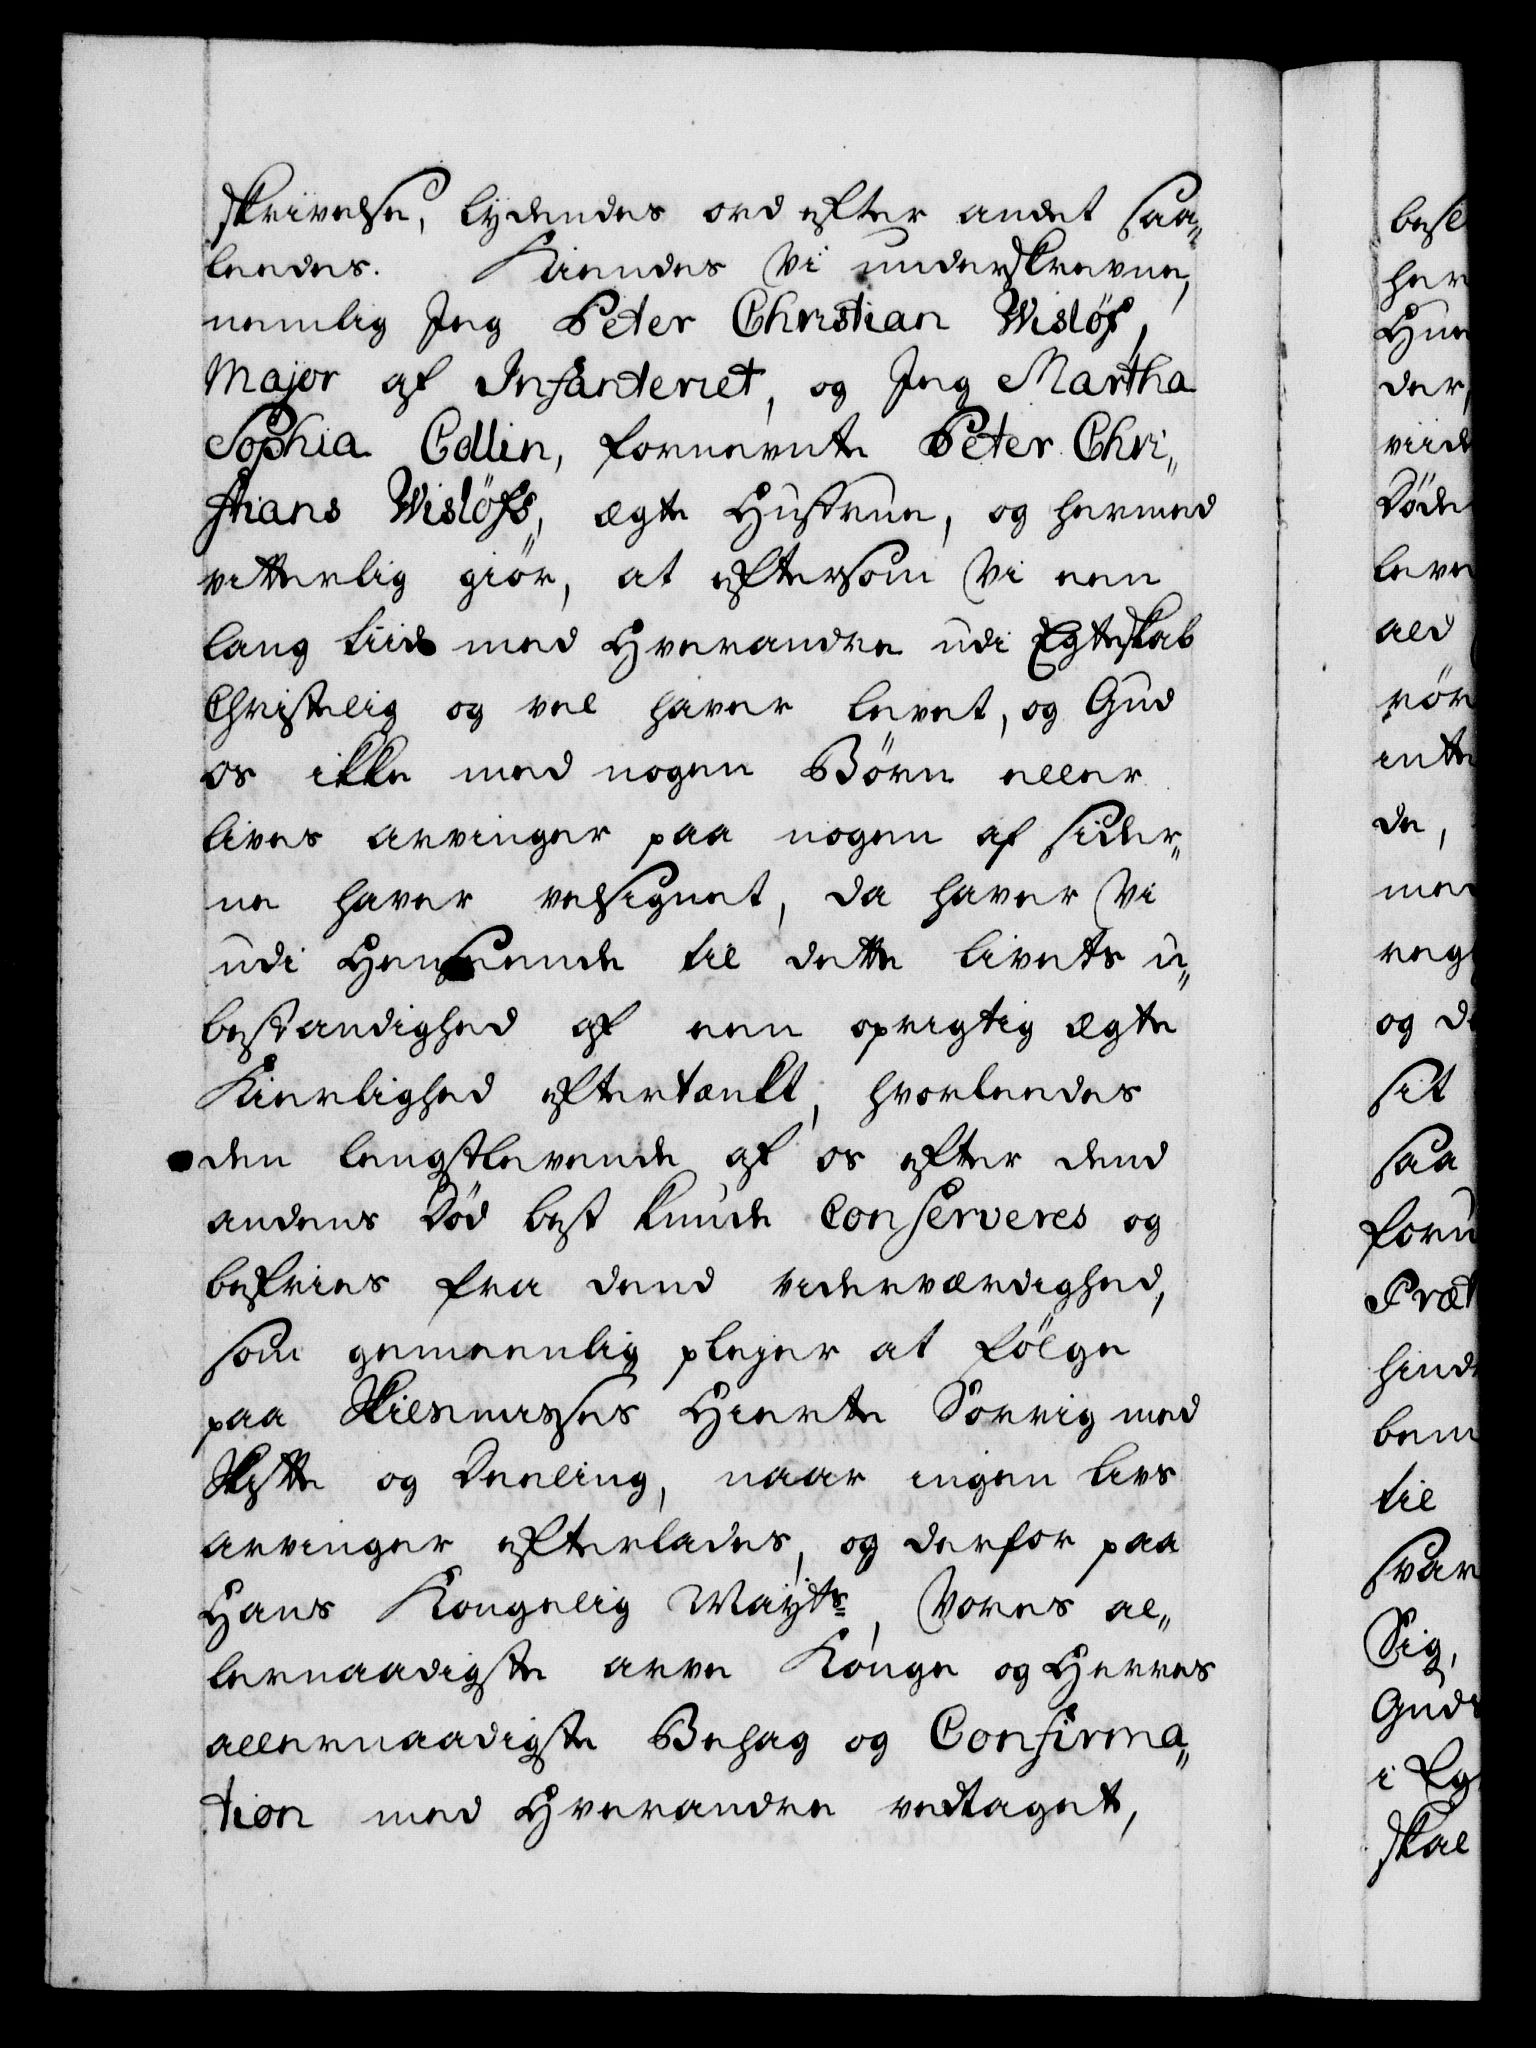 skrivelse, lydendes ord efter andet saa„
leedes. Kiendes Vi underskrevne,
nemlig Jeg Peter Christian Wislöf,
Major af Infanteriet, og Jeg Martha
Sophia Collin, fornevnte Peter Chri„
stians Wislöfs, ægte Hustrue, og hermed
vitterlig giör, at eftersom Vi een
lang tiid med Hverandre udi Egteskab
Christelig og vel haver levet, og Gud
os ikke med nogen Börn eller
livs arvinger paa nogen af sider„
ne haver velsignet, da haver Vi
udi Henseende til dette livets u„
bestandighed af een oprigtig ægte
Kierlighed eftertænkt, hvorleedes
den lengstlevende af os efter dend
andens Död best kunde Conserveres og
befries fra dend viderværdighed,
som gemeenlig plejer at fölge
paa Skilsmisses Hierte Sorrig med
Skifte og Deeling, naar ingen livs
arvinger efterlades, og derfor paa
Hans Kongelig Mayts, Vores al„
lernaadigste arve Konge og Herres
allernaadigste Behag og Confirma„
tion med Hverandre vedtaget,
besl
her
Hun
der,
viid
Döde
leve
ald
rör
ente
de,
med
reg
og d
sit
saa
foru
Præt
hind
bem
til
svar
Sig,
Guds
i Eg
skal